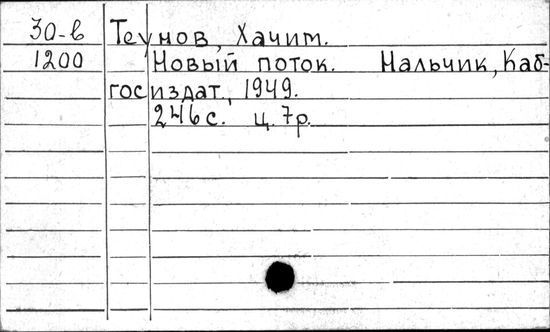 30-в Теунов, Хачим.
1200 Новый поток. Нальчик, Каб-
госиздат., 1949.
246 с. ц. 7р.